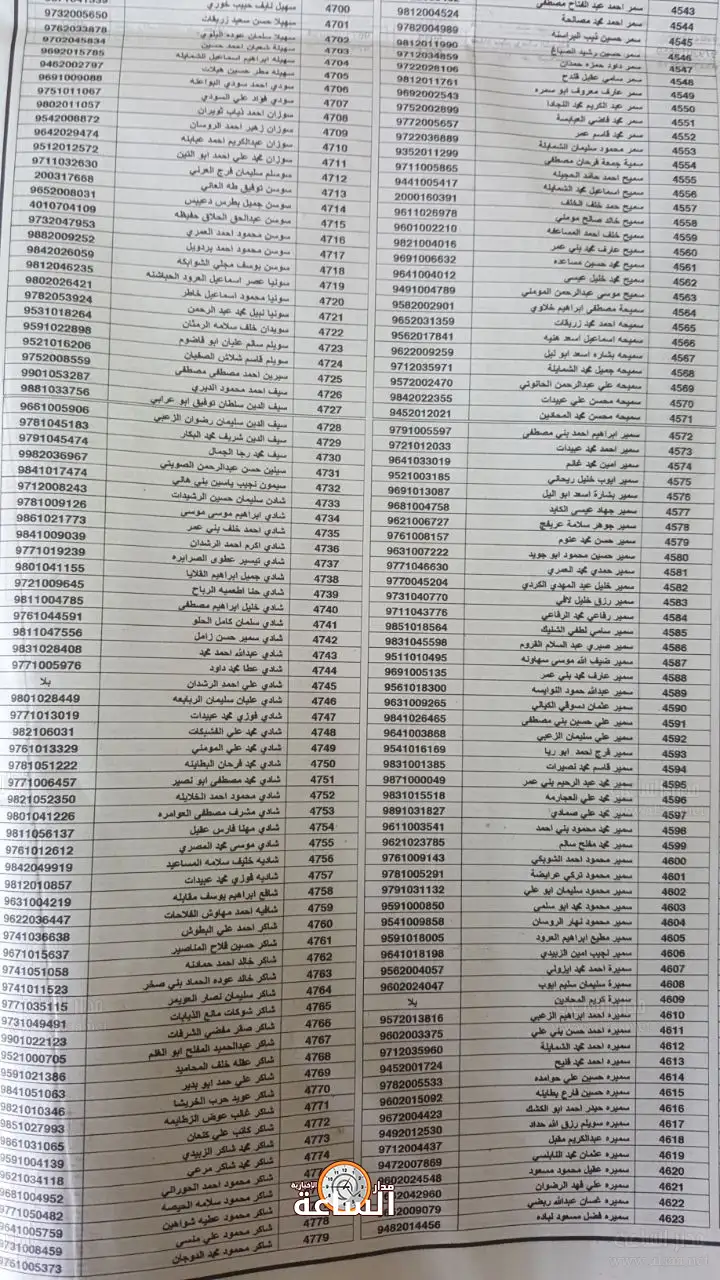 4543 سمر احمد عبد الفتاح مصطفى
4544 سمر احمد محمد مصالحة 9812004524
4545 سمر حسين ذيب البراسنه 9782004989
4546 سمر حسين رشيد الصباغ 9812011990
4547 سمر داود حمزه حمدان 9712034859
4548 سمر سامي عقيل قندح 9722028106
4549 سمر عارف معروف ابو سمره 9812011761
4550 سمر عبد الكريم محمد 9692002543
4551 سمر محمد قاضي العبابسة 9752002899
4552 سمر محمد قاسم عمر 9772005657
4553 سمر محمود سليمان الشمايلة 9722036889
4554 سمية جمعة فرحان مصطفى 9352011299
4555 سميح احمد حامد 9711005865
4556 سميح اسماعيل محمد الشمايله 9441005417
4557 سميح حمد خلف الخلف 2000160391
4558 سميح خالد صالح مومني 9611026978
4559 سميح خلف احمد المساعفه 9601002210
4560 سميح عارف محمد بني عمر 9821004016
4561 سميح محمد حسين مساعده 9691006632
4562 سميح محمد خليل عيسى 9641004012
4563 سميح موسى عبدالرحمن المومني 9491004789
4564 سميحة مصطفى ابراهيم خلاوي 9582002901
4565 سميحه احمد محمد زريقات 9652031359
4566 سميحه اسماعيل اسعد هنيه 9562017841
4567 سميحه بشاره اسعد ابو ليل 9622009259
4568 سميحه جميل محمد الشمايلة 9712035971
4569 سميحه علي عبدالرحمن الحانوتي 9572002470
4570 سميحه محسن علي عبيدات 9842022355
4571 سميحه محسن محمد المحادين 9452012021
4572 سمير ابراهيم احمد بني مصطفى 9791005597
4573 سمير احمد محمد عبيدات 9721012033
4574 سمير امين محمد غانم 9641033019
4575 سمير ايوب خليل ريحاني 9521003185
4576 سمير بشارة اسعد ابو اليل 9691013087
4577 سمير جهاد عيسى الكايد 9681004758
4578 سمير جوهر سلامة عريفج 9621006727
4579 سمير حسن محمد عتوم 9761008157
4580 سمير حسين محمود ابو جويد 9631007222
4581 سمير حمدي محمد العمري 9771046630
4582 سمير خليل عبد المهدي الكردي 9770045204
4583 سمير رزق خليل لافي 9731040770
4584 سمير رفاعي محمد الرفاعي 9711043776
4585 سمير سامي لطفي الشليك 9851018564
4586 سمير صبري عبد السلام القروم 9831045598
4587 سمير ضيف الله موسى سهاونه 9511010495
4588 سمير عارف محمد بني عمر 9691005135
4589 سمير عبدالله حمود النوايسه 9561018300
4590 سمير عثمان دسوقي الكيالي 9631009265
4591 سمير علي حسين بني مصطفى 9841026465
4592 سمير علي سليمان الزعبي 9641003868
4593 سمير فرج احمد ابو ريا 9541016169
4594 سمير قاسم محمد نصيرات 9831001385
4595 سمير محمد عبد الرحيم بني عمر 9871000049
4596 سمير محمد علي العجارمه 9831015518
4597 سمير محمد علي صمادي 9891031827
4598 سمير محمد محمود بني احمد 9611003541
4599 سمير محمد مفلح سالم 9621023785
4600 سمير محمود احمد الشويكي 9761009143
4601 سمير محمود تركي عرايضة 9781005291
4602 سمير محمود سليمان ابو علي 9791031132
4603 سمير محمود محمد ابو سلمى 9591000850
4604 سمير محمود نهار الروسان 9541009858
4605 سمير مطيع ابراهيم العرود 9591018005
4606 سمير نجيب امين الزبيدي 9641018198
4607 سميرة احمد محمد ايزولي 9562004057
4608 سميرة سليمان سليم ايوب 9602024047
4609 سميرة كريم المحادين بلا
4610 سميره احمد ابراهيم الزعبي 9572013816
4611 سميره احمد حسن بني علي 9602003375
4612 سميره احمد محمد الشمايلة 9712035960
4613 سميره احمد محمد فليح 9452001724
4614 سميره حسين علي حوامده 9782005533
4615 سميره حسين فارع بطاينه 9602015092
4616 سميره حيدر احمد ابو الكشك 9672004423
4617 سميره سويلم رزق الله حداد 9492012530
4618 سميره عبدالكريم مقبل 9712004437
4619 سميره عثمان محمد النابلسي 9472007869
4620 سميره عقيل محمود مسعود 9602024548
4621 سميره علي فهد الرضوان 2042960
4622 سميره غسان عبدالله ربضي 2009079
4623 سميره فضل مسعود لباده 9482014456
4700 سهيل نايف حبيب خوري
4701 سهيلا حسن سعيد زريقات 9732005650
4702 سهيلا سلمان عوده البلوي 9762033878
4703 سهيله شعبان احمد حسين 9702045834
4704 سهيله ابراهيم اسماعيل الشمايله 9692015785
4705 سهيله مطر حسين هيلات 9462002797
4706 سودي احمد سودي البواعنه 9691009088
4707 سودي فواد علي السودي 9751011067
4708 سوزان احمد ذياب نويران 9802011057
4709 سوزان زهير احمد الروسان 9542008872
4710 سوزان عبدالكريم احمد عبابنه 9642029474
4711 سوزان محمد علي احمد ابو التين 9512012572
4712 سوسلم سليمان فرج العزلي 9711032630
4713 سوسن توفيق طه العاني 200317668
4714 سوسن جميل بطرس دعيبس 9652008031
4715 سوسن عبدالحق الحلاق حفيظه 4010704109
4716 سوسن محمود احمد العمري 9732047953
4717 سوسن محمود احمد بردويل 9882009252
4718 سوسن يوسف مجلي الشوابكه 9842026059
4719 سونيا عصر اسماعيل العرود الحباشنه 9812046235
4720 سونيا محمود اسماعيل خاطر 9802026421
4721 سونيا نبيل محمد عبد الرحمن 9782053924
4722 سويدان خلف سلامه الرمثان 9531018264
4723 سويلم سالم عليان ابو قاضوم 9591022898
4724 سويلم قاسم شلاش الصفيان 9521016206
4725 سيرين احمد مصطفى مصطفى 9752008559
4726 سيف احمد محمود الديري 9901053287
4727 سيف الدين سلطان توفيق ابو عرابي 9881033756
4728 سيف الدين سليمان رضوان الزعبي 9661005906
4729 سيف الدين شريف محمد البكار 9781045183
4730 سيف محمد رجا الجمال 9791045474
4731 سيلين حسن عبدالرحمن الصويتي 9982036967
4732 سيمون نجيب ياسين بني هاني 9841017474
4733 شادن سليمان حسين الرشيدات 9712008243
4734 شادي ابراهيم موسى موسى 9781009126
4735 شادي احمد خلف بني عمر 9861021773
4736 شادي اكرم احمد الرشدان 9841009039
4737 شادي تيسير عطوى الصرايره 9771019239
4738 شادي جميل ابراهيم القلايا 9801041155
4739 شادي حنا اطعميه الرباح 9721009645
4740 شادي خليل ابراهيم مصطفى 9811004785
4741 شادي سلمان كامل الحلو 9761044591
4742 شادي سمير حسن زامل 9811047556
4743 شادي عبدالله احمد محمد 9831028408
4744 شادي عطا محمد داود 9771005976
4745 شادي علي احمد الرشدان بلا
4746 شادي عليان سليمان الربابعه 9801028449
4747 شادي فوزي محمد عبيدات 9771013019
4748 شادي محمد علي القشيكات 982106031
4749 شادي محمد علي المومني 9761013329
4750 شادي محمد فرحان البطاينه 9781051222
4751 شادي محمد مصطفى ابو نصير 9771006457
4752 شادي محمود احمد الخلايله 9821052350
4753 شادي مشرف مصطفى العوامره 9801041226
4754 شادي مهنا فارس عقيل 9811056137
4755 شادي موسى محمد المصري 9761012612
4756 شاديه خليف سلامه المساعيد 9842049919
4757 شاديه فوزي محمد عبيدات 9812010857
4758 شافع ابراهيم يوسف مقابله 9631004219
4759 شافيه احمد مهاوش الفلاحات 9622036447
4760 شاكر احمد علي البطوش 9741036638
4761 شاكر حسين فلاح المناصير 9671015637
4762 شاكر خالد احمد حمادنه 9741051058
4763 شاكر خالد عوده الحماد بني صخر 9741011523
4764 شاكر سليمان نصار العويمر 9771035115
4765 شاكر شوكات مانع الذيابات 9731049491
4766 شاكر صقر مفضي الشرفات 9901022123
4767 شاكر عبدالحميد المفلح ابو الغلم 9521000705
4768 شاكر عقله خلف المحاميد 9591021386
4769 شاكر علي حمد ابو بدير 9841051063
4770 شاكر عويد حرب الخريشا 9821010346
4771 شاكر غالب عوض الزطايمه 9851027993
4772 شاكر كاتب علي كنعان 9861031065
4773 شاكر محمد شاكر الزبيدي 9591004139
4774 شاكر محمد شاكر مرعي 9621034118
477 شاكر محمود احمد الحوراني 9681004952
شاكر محمود سلامه الحيصه 9771050482
شاكر محمود عطيه شواهين 9641005759
4778 شاكر محمود علي منسي 9731008459
4779 شاكر محمود محمد الدوجان 9761005373
مدار الساعة الاخبارية